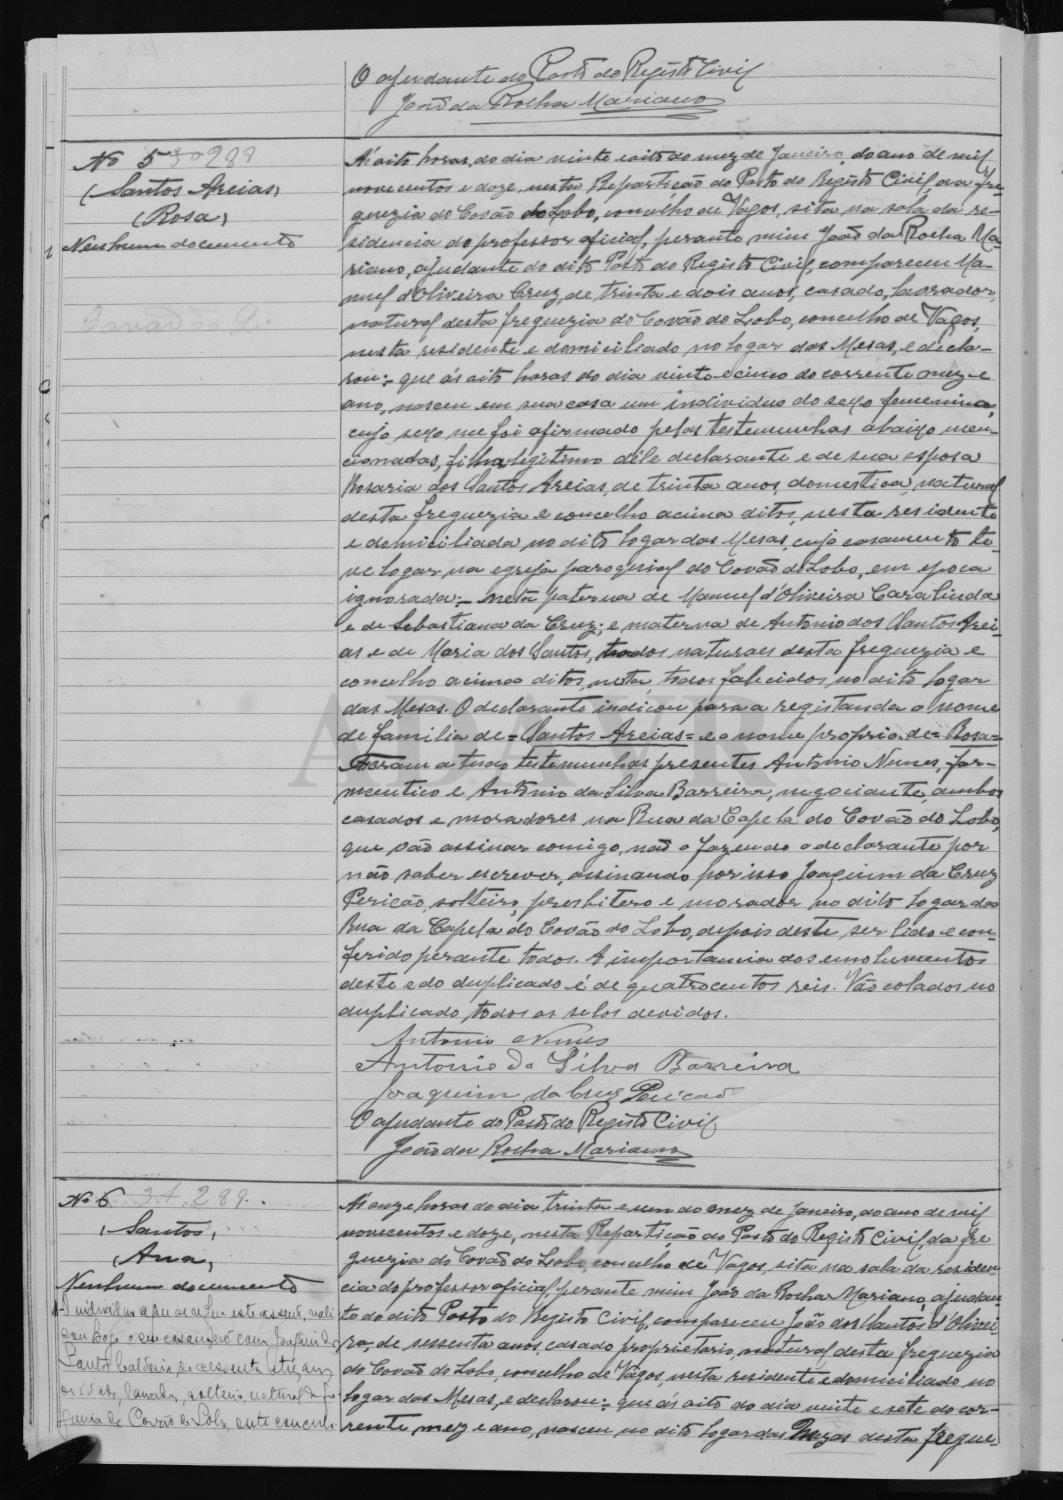 O ajudante do Posto do Registo Civil
João da Rocha Mariano
Nº 5 30 289
(Santos Areias)
(Rosa)
Nenhum documento
A's oito horas, do dia vinte e oito do mez de Janeiro, do ano de mil
novecentos e doze, nesta Repartição do Posto do Registo Civil, da fre-
guezia do Covão do Lobo, concelho de Vagos, sita na sala da re-
sidencia do professor oficial, perante mim João da Rocha Ma-
riano, ajudante do dito Posto do Registo Civil, compareceu Ma-
nuel d'Oliveira Cruz, de trinta e dois anos, casado, lavrador,
natural desta freguezia do Covão do Lobo, concelho de Vagos,
nesta residente e domiciliado no logar das Mesas, e decla-
rou:- que ás oito horas do dia vinte e cinco do corrente mez e
ano, nasceu em sua casa um individuo do sexo femenino,
cujo sexo me foi afirmado pelas testemunhas abaixo men-
cionadas, filha legitimo dêle declarante e de sua esposa
Rosaria dos Santos Areias, de trinta anos, domestica, natural
desta freguezia e concelho acima ditos, nesta residente
e domiciliada no dito logar das Mesas, cujo casamento te-
ve logar na egreja paroquial do Covão do Lobo, em epoca
ignorada:- neta paterna de Manuel d'Oliveira Caralinda
e de Sebastiana da Cruz; e materna de Antonio dos Santos Arei-
as e de Maria dos Santos, todos naturaes desta freguezia e
concelho acima ditos, nesta, todos falecidos, no dito logar
das Mesas. O declarante indicou para a registanda o nome
de familia de = Santos Areias = e o nome proprio de = Rosa =
Foram a tudo testemunhas presentes Antonio Nunes, far-
mceutico e Antonio da Silva Barreira, negociante, ambos
casados e moradores na Rua da Capela do Covão do Lobo,
que vão assinar comigo, não o fazendo o declarante por
não saber escrever, assinando por isso Joaquim da Cruz
Pericão, solteiro, presbitero e morador no dito logar da
Rua da Capela do Covão do Lobo, depois deste ser lido e con-
ferido perante todos. A importancia dos emolumentos
deste e do duplicado é de quatrocentos reis. Vão colados no
duplicado, todos os selos devidos.
Antonio Nunes
Antonio da Silva Barreira
Joaquim da Cruz Pericão
O ajudante do Posto do Registo Civil
João da Rocha Mariano
Nº 6 31 289
(Santos)
(Ana)
Nenhum documento
O individuo a que se refere este assento, reali
sou hoje o seu casamento com Joaquim dos
Santos Caldeira, de sessenta
de idade, lavrador, solteiro, natural da fre
guezia de Covão do Lobo, este concelho
A's onze horas do dia trinta e um do mez de Janeiro, do ano de mil
novecentos e doze, nesta Repartição do Posto do Registo Civil, da fre
guezia do Covão do Lobo, concelho de Vagos, sita na sala da residen-
cia do professor oficial, perante mim João da Rocha Mariano, ajudan-
te do dito Posto do Registo Civil, compareceu João dos Santos d'Olivei
ra, de sessenta anos, casado, proprietario, natural desta freguezia
do Covão do Lobo, concelho de Vagos, nesta residente e domiciliado no
logar das Mesas, e declarou:- que ás oito do dia vinte e sete do cor-
rente mez e ano, nasceu no dito logar das Mezas desta fregue-
ADAVR